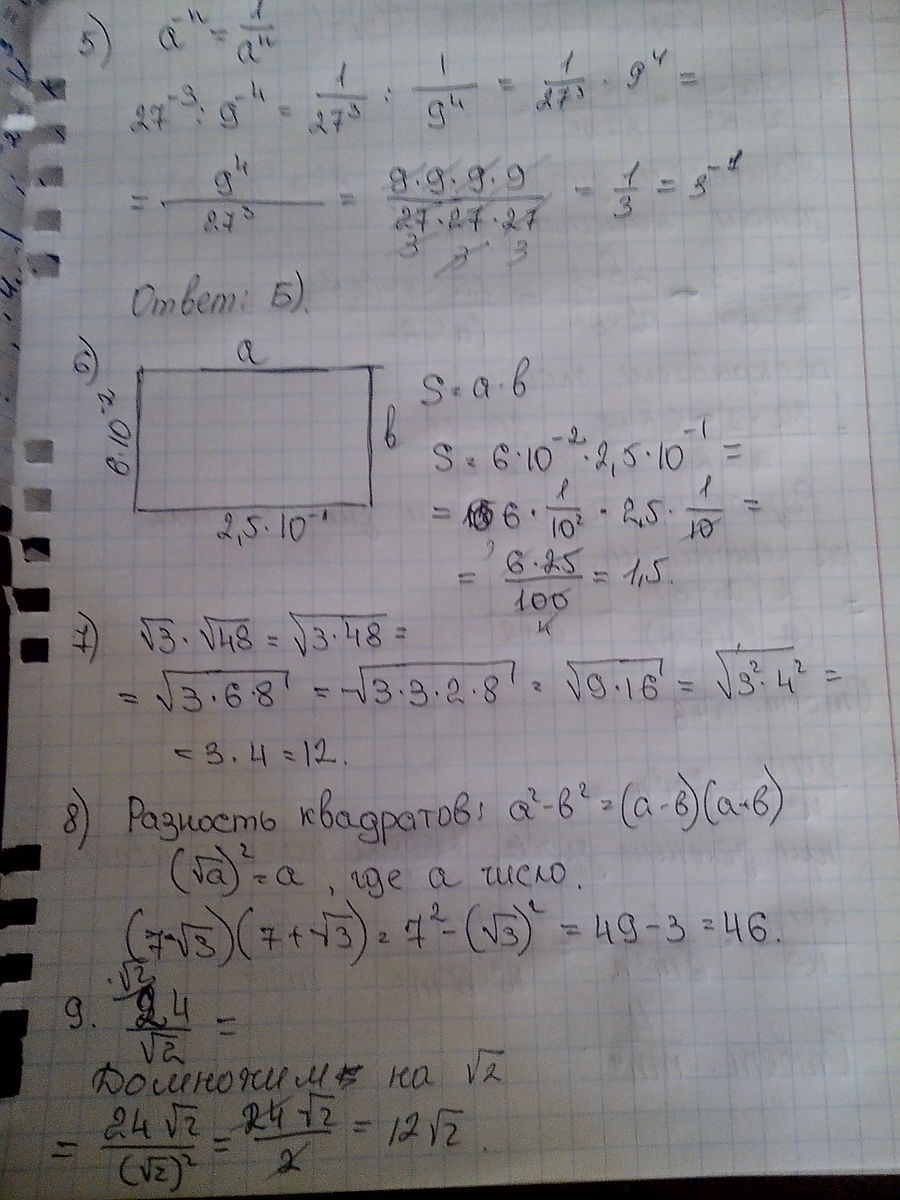 5) a⁻ⁿ = 1/aⁿ
27⁻³ : 9⁻⁴ = 1/27³ : 1/9⁴ = 1/27³ · 9⁴ =
= 9⁴/27³ = 9·9·9·9/27·27·27 = 1/3 = 3⁻¹
3 3 3
Ответ: Б).
6) a
6·10⁻²
в
2,5·10⁻¹
S = a·в
S = 6·10⁻²·2,5·10⁻¹ =
= 6 · 1/10² · 2,5 · 1/10 =
= 6·25/100 = 1,5.
4
7) √3 · √48 = √(3·48) =
= √(3·6·8) = √(3·3·2·8) = √(9·16) = √(3²·4²) =
= 3·4 = 12.
8) Разность квадратов: a²-в² = (a-в)(a+в)
(√a)² = a, где a число.
(7-√3)(7+√3) = 7²-(√3)² = 49-3 = 46.
·√2
9. 24/√2 =
Домножим на √2
= 24√2/(√2)² = 24√2/2 = 12√2.